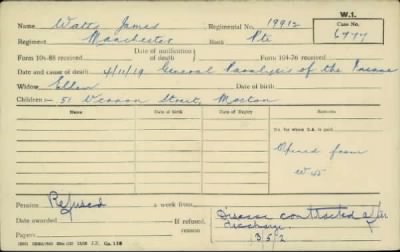 W.1.
Name Watts James Regimental No. 19912 Case No.
Regiment Manchester Rank Pte 6777
Form 104-88 received Date of notification of death Form 104-76 received
Date and cause of death 4/11/19 General Paralysis of the Insane
Widow Ellen Date of birth
Children:— 51 Vernon Street, Moston
Name Date of Birth Date of Expiry No. for whom S.A. is paid.
Opened from
W 45
Pension Refused a week from
Date awarded If refused, reason Disease contracted after
discharge.
352